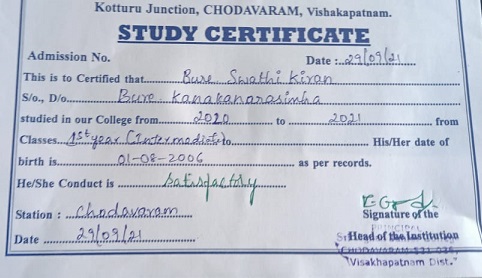 Kotturu Junction, CHODAVARAM, Vishakapatnam.
STUDY CERTIFICATE
Admission No. Date :..29/09/21......
This is to Certified that........Bure Swathi Kiran
S/o., D/o........Bure Kanakanarasimha
studied in our College from......2020......to......2021......from
Classes..1st year (Intermediate)to...... His/Her date of
birth is......01-08-2006...... as per records.
He/She Conduct is ......satisfactory
Station : ...Chodavaram
Signature of the
PRINCIPAL
Head of the Institution
Date ......29/09/21......
CHODAVARAM-531 036,
Visakhapatnam Dist."